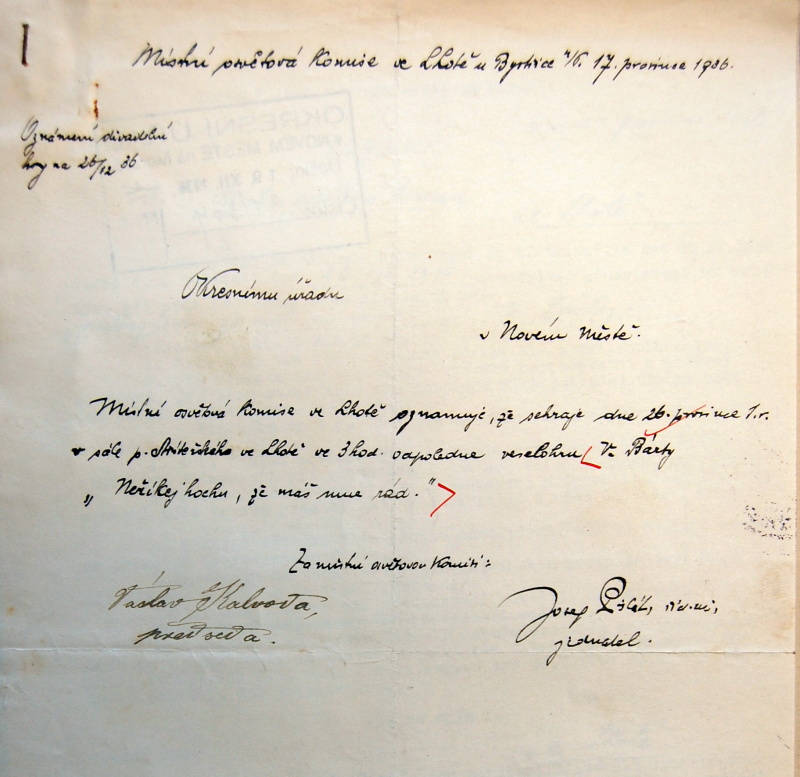 Místní osvětová Komise ve Lhotě u Bystřice n/P. 17. prosince 1936.
Oznámení divadelní
hry na 26/12 36.
OKRESNÍ Ú
V NOVÉM MĚSTĚ na Mor
Došlo: 19. XII. 1936
Okresnímu úřadu
v Novém Městě.
Místní osvětová Komise ve Lhotě oznamuje, že sehraje dne 26. prosince t.r.
v sále p. Stříteského ve Lhotě ve 3 hod. odpoledne veselohru V. Bárty
„Neříkej hochu, že máš mne rád."
Za místní osvětovou Komisi:
Václav Kalvoda,
předseda.
Josef
jednatel.